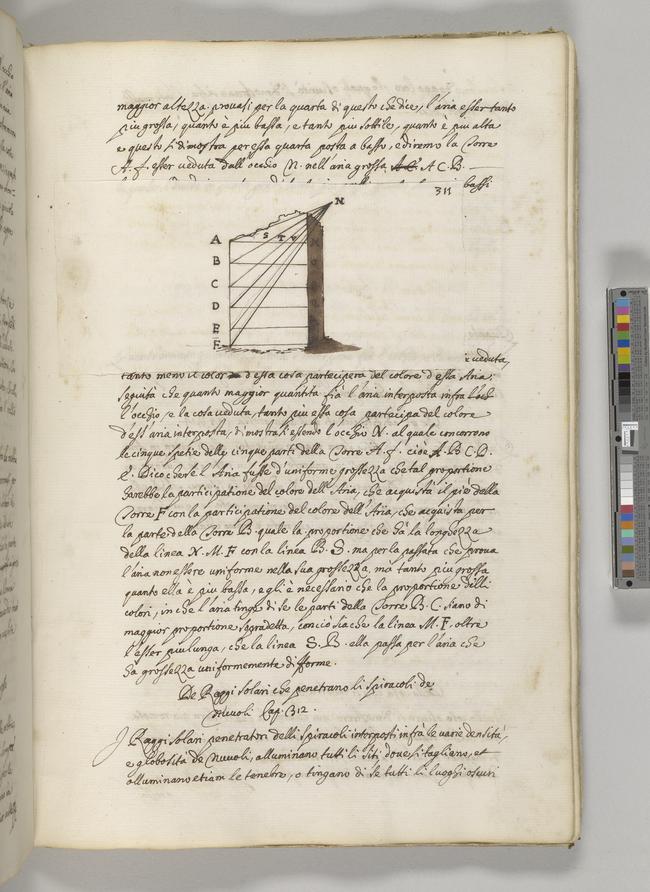 maggior altezza. provasi per la quarta di questo che dice, l'aria esser tanto
piu grossa, quanto è piu bassa, e tanto piu sottile, quanto è piu alta
e questo si dimostra per essa quarta posta a basso, e diremo la Torre
A. f. esser veduta dall'occhio N. nell'aria grossa A C. B.
311 bassi
N
A S T V
B
C
D
E
F
veduta,
tanto meno il color d'essa cosa parteciperà del colore d'essa Aria.
seguita che quanto maggior quantità fia l'aria interposta infra l'occ
l'occhio, e la cosa veduta, tanto piu essa cosa participa del colore
d'ess'aria interposta, dimostrasi essendo l'occhio N. al quale concorrono
le cinque spetie delle cinque parti della Torre A. f. cioè A. B C. D.
E. Dico che se l'Aria fusse d'uniforme grossezza che tal proportione
harebbe la participatione del colore dell'Aria, che acquista il piè della
Torre F con la participatione del colore dell'Aria, che acquista per
la parte della Torre B. quale la proportione che hà la longhezza
della linea N. M. F con la linea B. S. ma per la passata che prova
l'aria non essere uniforme nella sua grossezza, mà tanto piu grossa
quanto ella è piu bassa, egli è necessario che la proportione delli
colori, in che l'aria tinge di se le parti della Torre B. C. siano di
maggior proportione sopradetta, conciò sia che la linea M. F, oltre
l'esser piu lunga, che la linea S. B. ella passa per l'aria che
ha grossezza uniformemente difforme.
De Raggi solari che penetrano li spiracoli de
Nuvoli Cap. 312.
I Raggi solari penetratori delli spiracoli interposti infrà le varie densità,
e globosità de Nuvoli, alluminano tutti li siti dove si tagliano, et
alluminano etiam le tenebre, o tingano di se tutti li luoghi oscuri